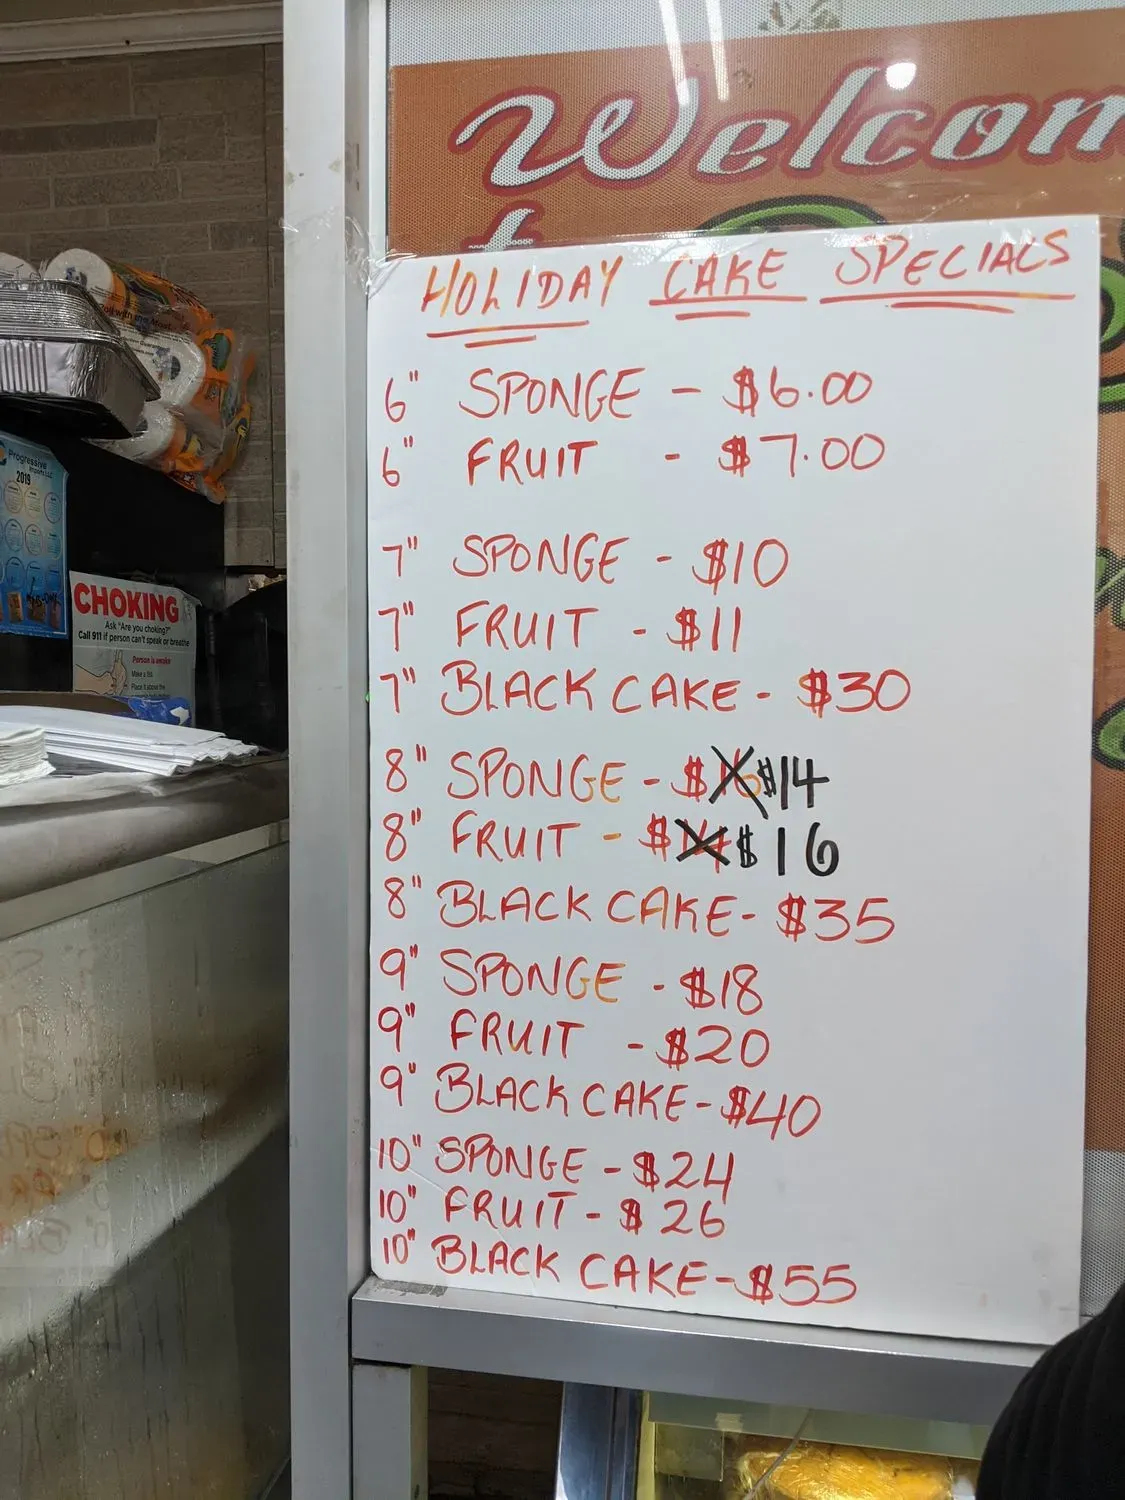 Welcom
t
HOLIDAY CAKE SPECIALS
6" SPONGE - $6.00
6" FRUIT - $7.00
7" SPONGE - $10
7" FRUIT - $11
7" BLACK CAKE - $30
8" SPONGE - $16 $14
8" FRUIT - $14 $16
8" BLACK CAKE - $35
9" SPONGE - $18
9" FRUIT - $20
9" BLACK CAKE - $40
10" SPONGE - $24
10" FRUIT - $26
10" BLACK CAKE - $55
Progressive
2019
CHOKING
Ask "Are you choking?"
Call 911 if person can't speak or breathe
Person is awake
Make a fist
Place it above the